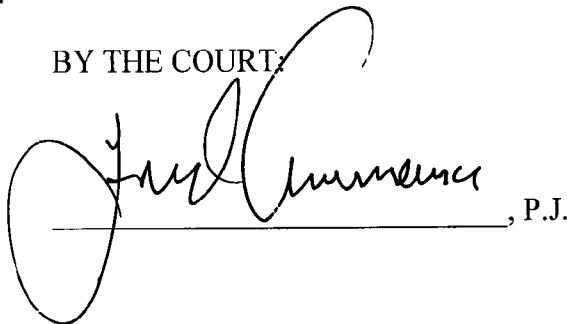 BY THE COURT:
, P.J.